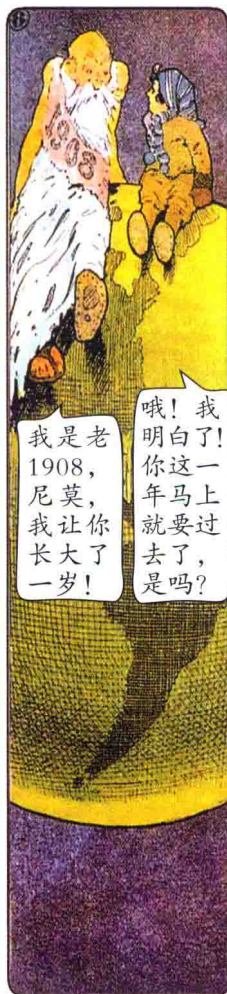 6
1908
我是老
1908，
尼莫，
我让你
长大了
一岁！
哦！我
明白了！
你这一
年马上
就要过
去了，
是吗？